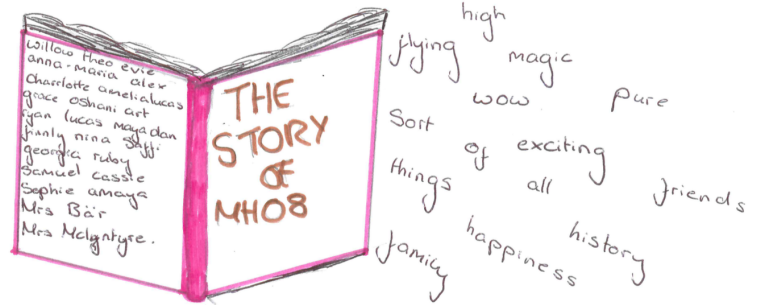 willow theo evie
anna-maria alex
Charrlotte amelialucas
grace oshani art
ryan lucas maya dan
nina saffi
georgia ruby
Samuel cassie
Sophie amaya
Mrs Bär
Mrs McIgntyre.
THE
STORY
OF
MH08
high
flying
magic
wow
pure
Sort
of
exciting
things
all
friends
family
happiness
history